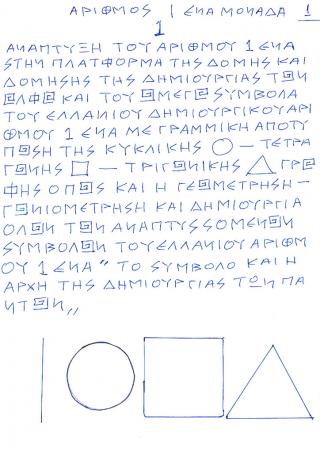 ΑΡΙΘΜΟΣ | ΕΝΑ ΜΟΝΑΔΑ 1
1
ΑΝΑΠΤΥΞΗ ΤΟΥ ΑΡΙΘΜΟΥ 1 ΕΝΑ
ΣΤΗΝ ΠΛΑΤΦΟΡΜΑ ΤΗΣ ΔΟΜΗΣ ΚΑΙ
ΔΟΜΗΣΗΣ ΤΗΣ ΔΗΜΙΟΥΡΓΙΑΣ ΤΩΝ
ΑΛΦΑ ΚΑΙ ΤΟΥ ΩΜΕΓΑ ΣΥΜΒΟΛΑ
ΤΟΥ ΕΛΛΑΝΙΟΥ ΔΗΜΙΟΥΡΓΙΚΟΥ ΑΡΙ
ΘΜΟΥ 1 ΕΝΑ ΜΕ ΓΡΑΜΜΙΚΗ ΑΠΟΤΥ
ΠΩΣΗ ΤΗΣ ΚΥΚΛΙΚΗΣ ○ — ΤΕΤΡΑ
ΓΩΝΗΣ □ — ΤΡΙΓΩΝΙΚΗΣ △ ΓΡΑ
ΦΗΣ ΟΠΩΣ ΚΑΙ Η ΓΕΩΜΕΤΡΗΣΗ —
ΓΩΝΙΟΜΕΤΡΗΣΗ ΚΑΙ ΔΗΜΙΟΥΡΓΙΑ
ΟΛΩΝ ΤΩΝ ΑΝΑΠΤΥΣΣΟΜΕΝΩΝ
ΣΥΜΒΟΛΩΝ ΤΟΥ ΕΛΛΑΝΙΟΥ ΑΡΙΘΜ
ΟΥ 1 ΕΝΑ " ΤΟ ΣΥΜΒΟΛΟ ΚΑΙ Η
ΑΡΧΗ ΤΗΣ ΔΗΜΙΟΥΡΓΙΑΣ ΤΩΝ ΠΑ
ΝΤΩΝ ,,